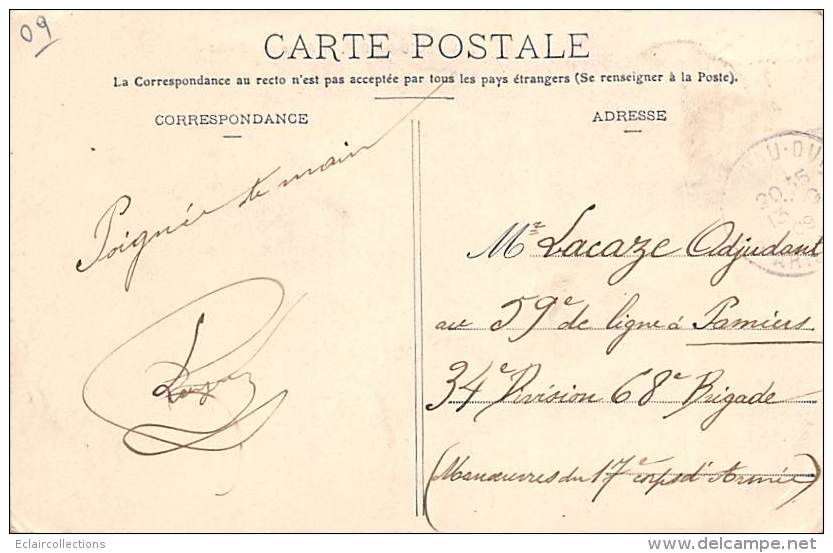 09
CARTE POSTALE
La Correspondance au recto n'est pas acceptée par tous les pays étrangers (Se renseigner à la Poste).
CORRESPONDANCE
ADRESSE
Poignée de main
Mr Lacaze Adjudant
au 59e de ligne à Pamiers
34e Division 68e Brigade
(Manœuvres du 17e corps d'Armée)
Eclaircollections
delcampe.net